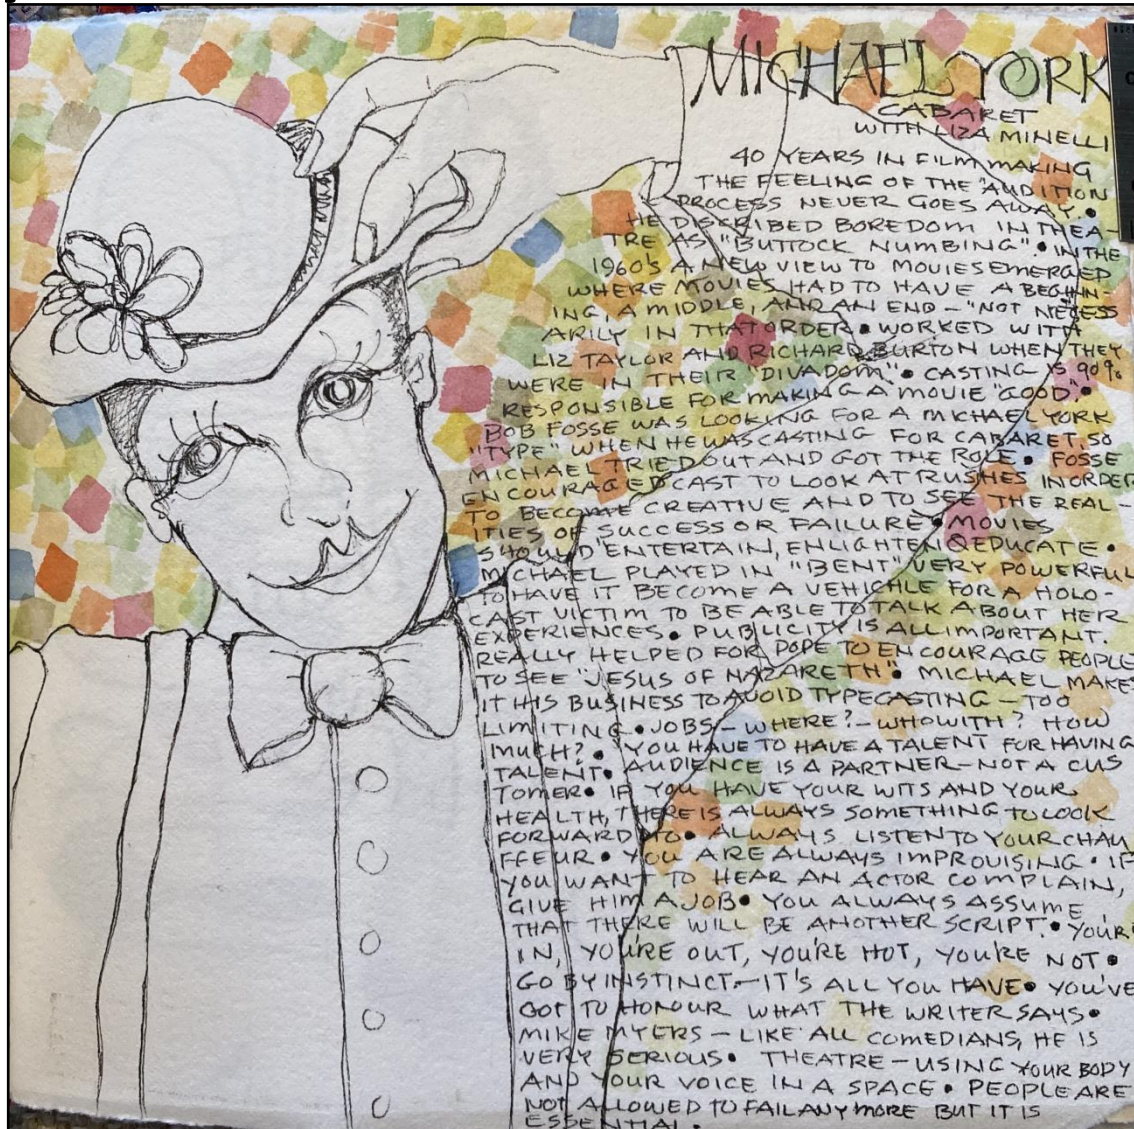 MICHAEL YORK
CABARET
WITH LIZA MINELLI
40 YEARS IN FILM MAKING
THE FEELING OF THE "AUDITION
PROCESS NEVER GOES AWAY. •
HE DISCRIBED BOREDOM IN THEA-
TRE AS "BUTTOCK NUMBING" • IN THE
1960'S A NEW VIEW TO MOVIES EMERGED
WHERE MOVIES HAD TO HAVE A BEGINN-
ING, A MIDDLE, AND AN END – "NOT NECESS
ARILY IN THAT ORDER • WORKED WITH
LIZ TAYLOR AND RICHARD BURTON WHEN THEY
WERE IN THEIR "DIVADOM" • CASTING IS 90%
RESPONSIBLE FOR MAKING A MOVIE "GOOD" •
BOB FOSSE WAS LOOKING FOR A MICHAEL YORK
"TYPE" WHEN HE WAS CASTING FOR CABARET, SO
MICHAEL TRIED OUT AND GOT THE ROLE • FOSSE
ENCOURAGED CAST TO LOOK AT RUSHES IN ORDER
TO BECOME CREATIVE AND TO SEE THE REAL-
ITIES OF SUCCESS OR FAILURE • MOVIES
SHOULD ENTERTAIN, ENLIGHTEN & EDUCATE •
MICHAEL PLAYED IN "BENT" VERY POWERFUL
TO HAVE IT BECOME A VEHICHLE FOR A HOLO-
CAST VICTIM TO BE ABLE TO TALK ABOUT HEIR
EXPERIENCES • PUBLICITY IS ALL IMPORTANT.
REALLY HELPED FOR POPE TO ENCOURAGE PEOPLE
TO SEE "JESUS OF NAZARETH" • MICHAEL MAKES
IT HIS BUSINESS TO AVOID TYPECASTING – TOO
LIMITING • JOBS – WHERE? – WHO WITH? HOW
MUCH? • "YOU HAVE TO HAVE A TALENT FOR HAVING
TALENT • AUDIENCE IS A PARTNER – NOT A CUS
TOMER • IF YOU HAVE YOUR WITS AND YOUR
HEALTH, THERE IS ALWAYS SOMETHING TO LOOK
FORWARD TO • ALWAYS LISTEN TO YOUR CHAU
FFEUR • YOU ARE ALWAYS IMPROVISING • IF
YOU WANT TO HEAR AN ACTOR COMPLAIN,
GIVE HIM A JOB • YOU ALWAYS ASSUME
THAT THERE WILL BE ANOTHER SCRIPT. • YOU'RE
IN, YOU'RE OUT, YOU'RE HOT, YOU'RE NOT •
GO BY INSTINCT – IT'S ALL YOU HAVE • YOU'VE
GOT TO HONOUR WHAT THE WRITER SAYS •
MIKE MYERS – LIKE ALL COMEDIANS, HE IS
VERY SERIOUS • THEATRE – USING YOUR BODY
AND YOUR VOICE IN A SPACE • PEOPLE ARE
NOT ALLOWED TO FAIL ANY MORE BUT IT IS
ESSENTIAL •